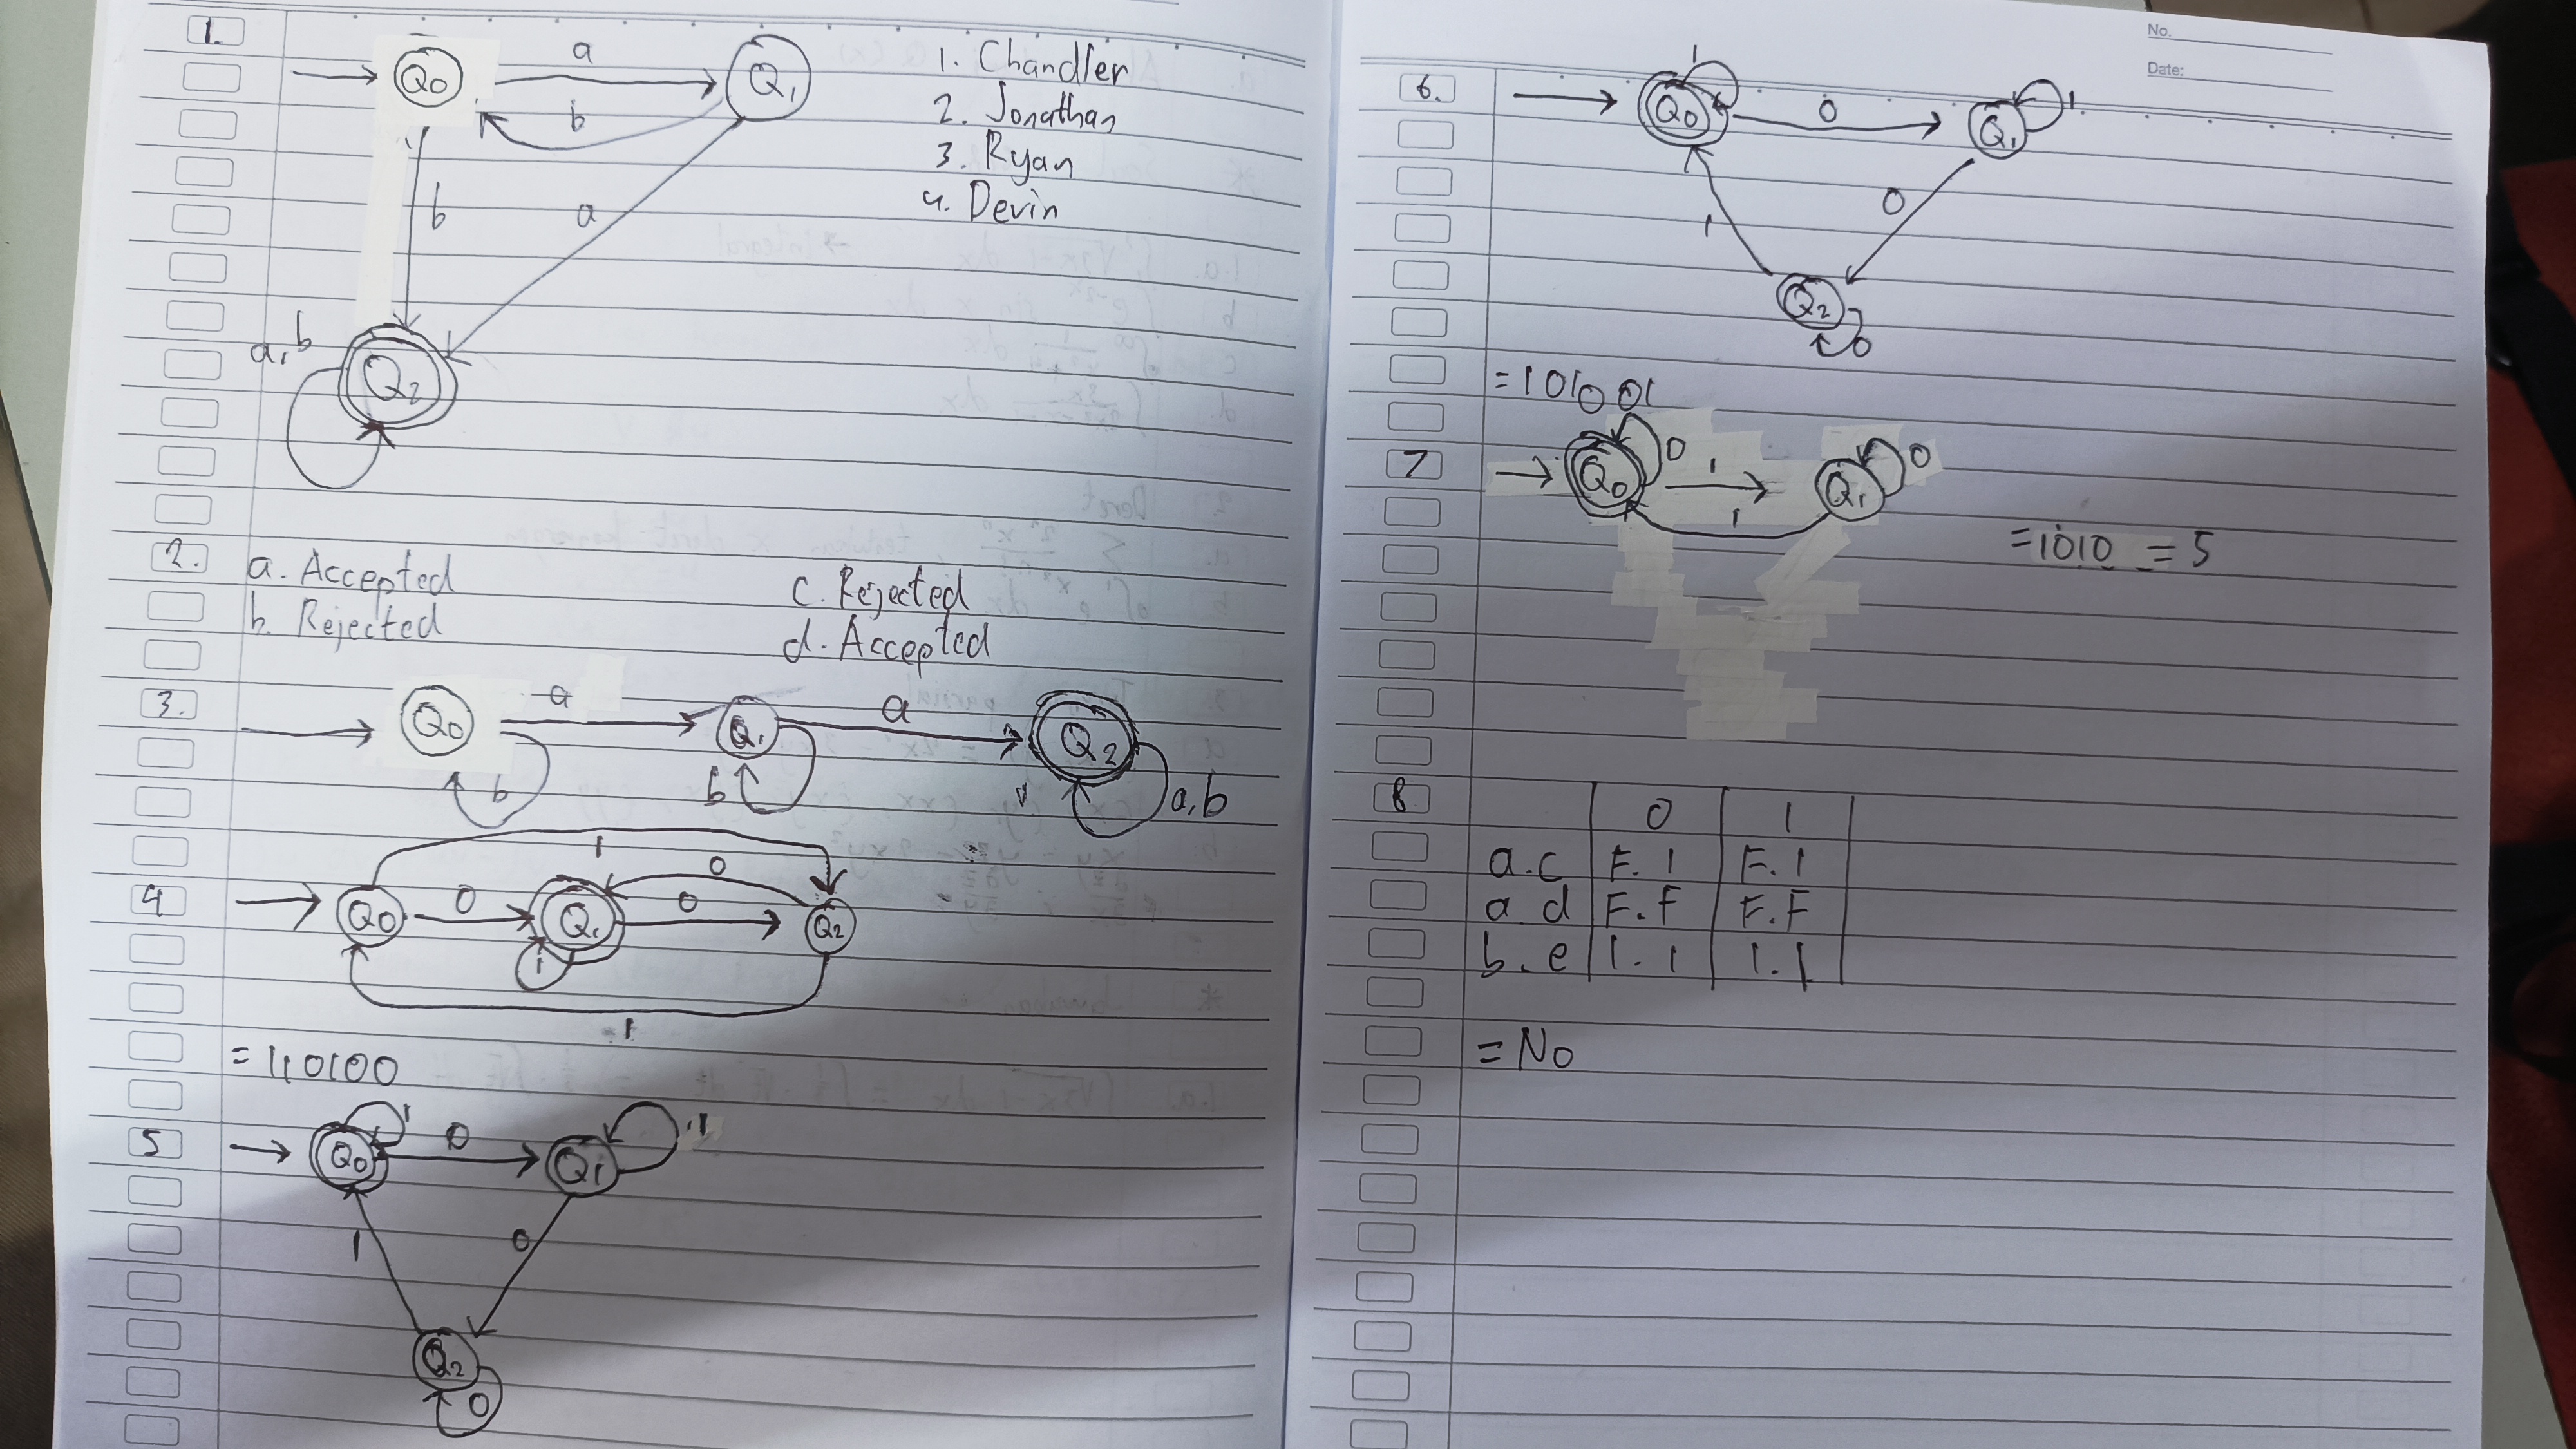 1.
Q0
a
Q1
b
b
a
a,b
Q2
1. Chandler
2. Jonathan
3. Ryan
4. Devin
2.
a. Accepted
b. Rejected
c. Rejected
d. Accepted
3.
Q0
a
Q1
a
Q2
b
b
a,b
4
1
0
Q0
0
Q1
0
Q2
1
1
= 110100
5
1
Q0
0
Q1
1
1
0
Q2
0
No.
Date:
6.
1
Q0
0
Q1
1
0
1
Q2
0
= 101001
7
Q0
0
1
Q1
0
1
= 1010 = 5
8
0 1
a.c F.1 F.1
a.d F.F F.F
b.e 1.1 1.1
= No